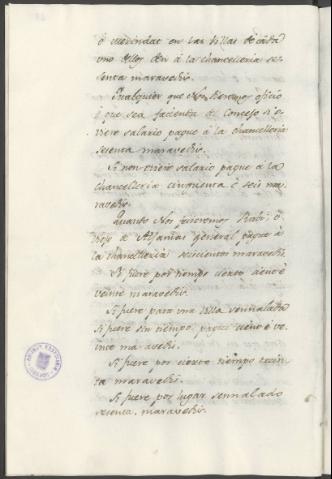 ó merindat en las villas de cada
uno dellos den á la chancelleria se-
senta maravedis.
Qualquier que Nos dieremos oficio
è que sea facienda de Concejo si o-
viere salario pague á la chancelleria
sesenta maravedis.
Si non oviere salario pague á la
chancelleria cinquenta è seis ma-
ravedis.
Quanto Nos ficieremos Rabi ó
Viejo de Aljamas general pague á
la chancelleria seiscientos maravedis.
Si fuere por tiempo cierto ciento è
veinte maravedis.
Si fuere para una villa sennalada
si fuere sin tiempo, pague ciento è ve-
inte maravedis.
Si fuere por cierto tiempo trein-
ta maravedis.
Si fuere por lugar sennalado
sesenta maravedis.